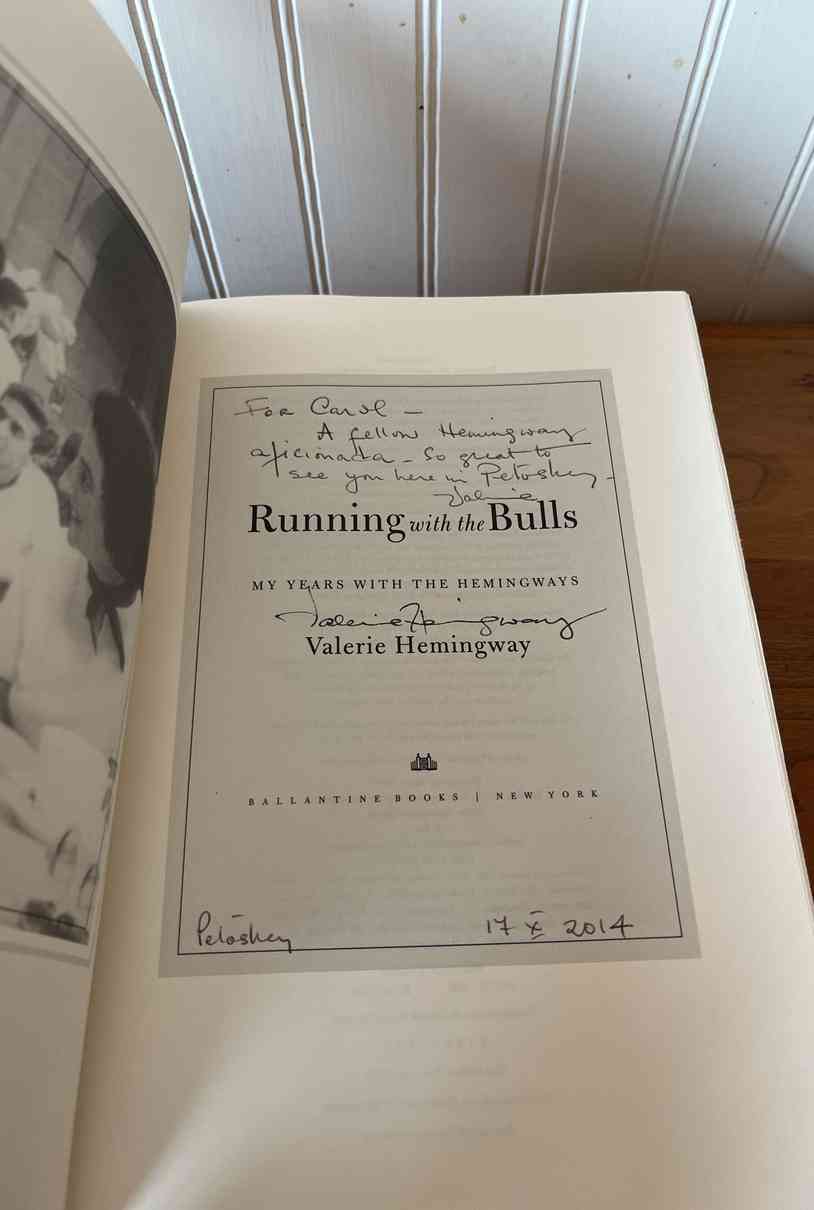 For Carol –
A fellow Hemingway
aficionada – So great to
see you here in Petoskey –
Valerie
Running with the Bulls
MY YEARS WITH THE HEMINGWAYS
Valerie Hemingway
Valerie Hemingway
BALLANTINE BOOKS | NEW YORK
Petoskey
17 X 2014